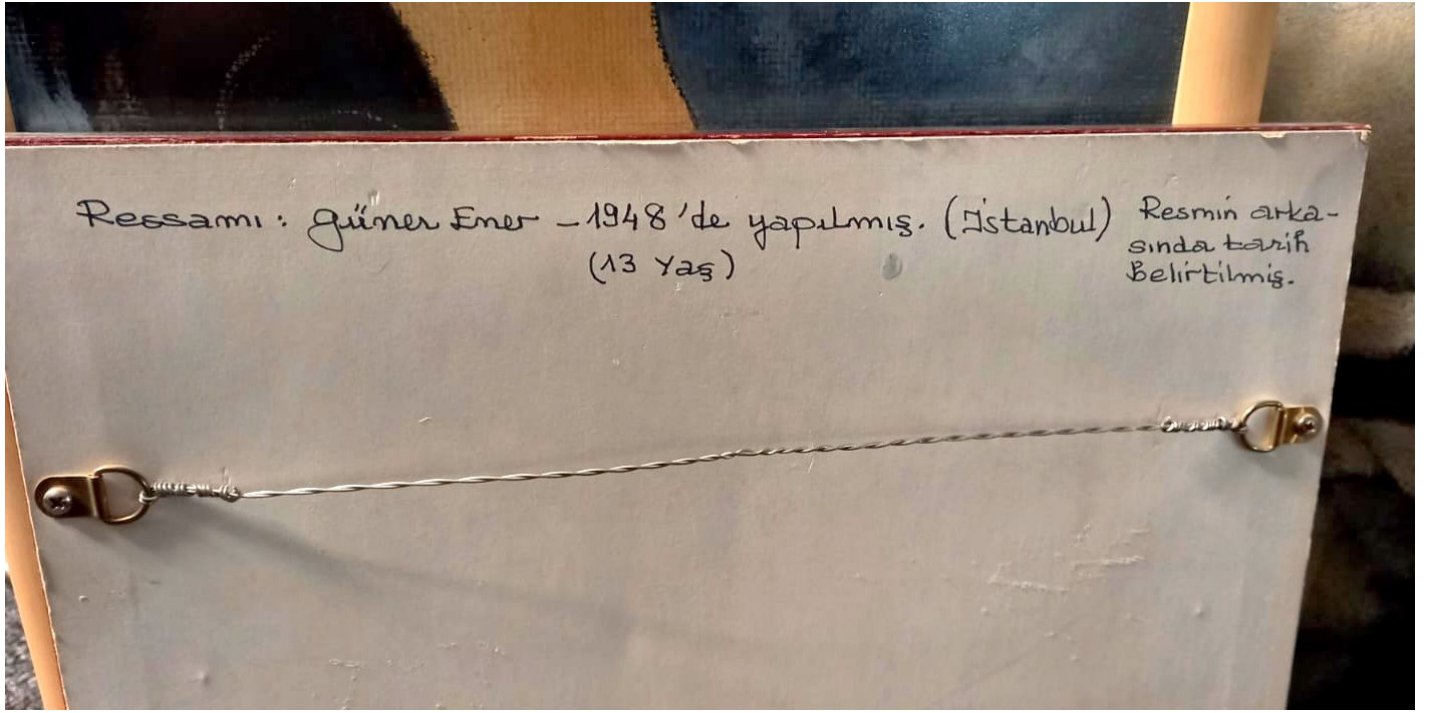 Ressamı: Güner Ener – 1948'de yapılmış. (İstanbul)
(13 Yaş)
Resmin arka-
sında tarih
Belirtilmiş.